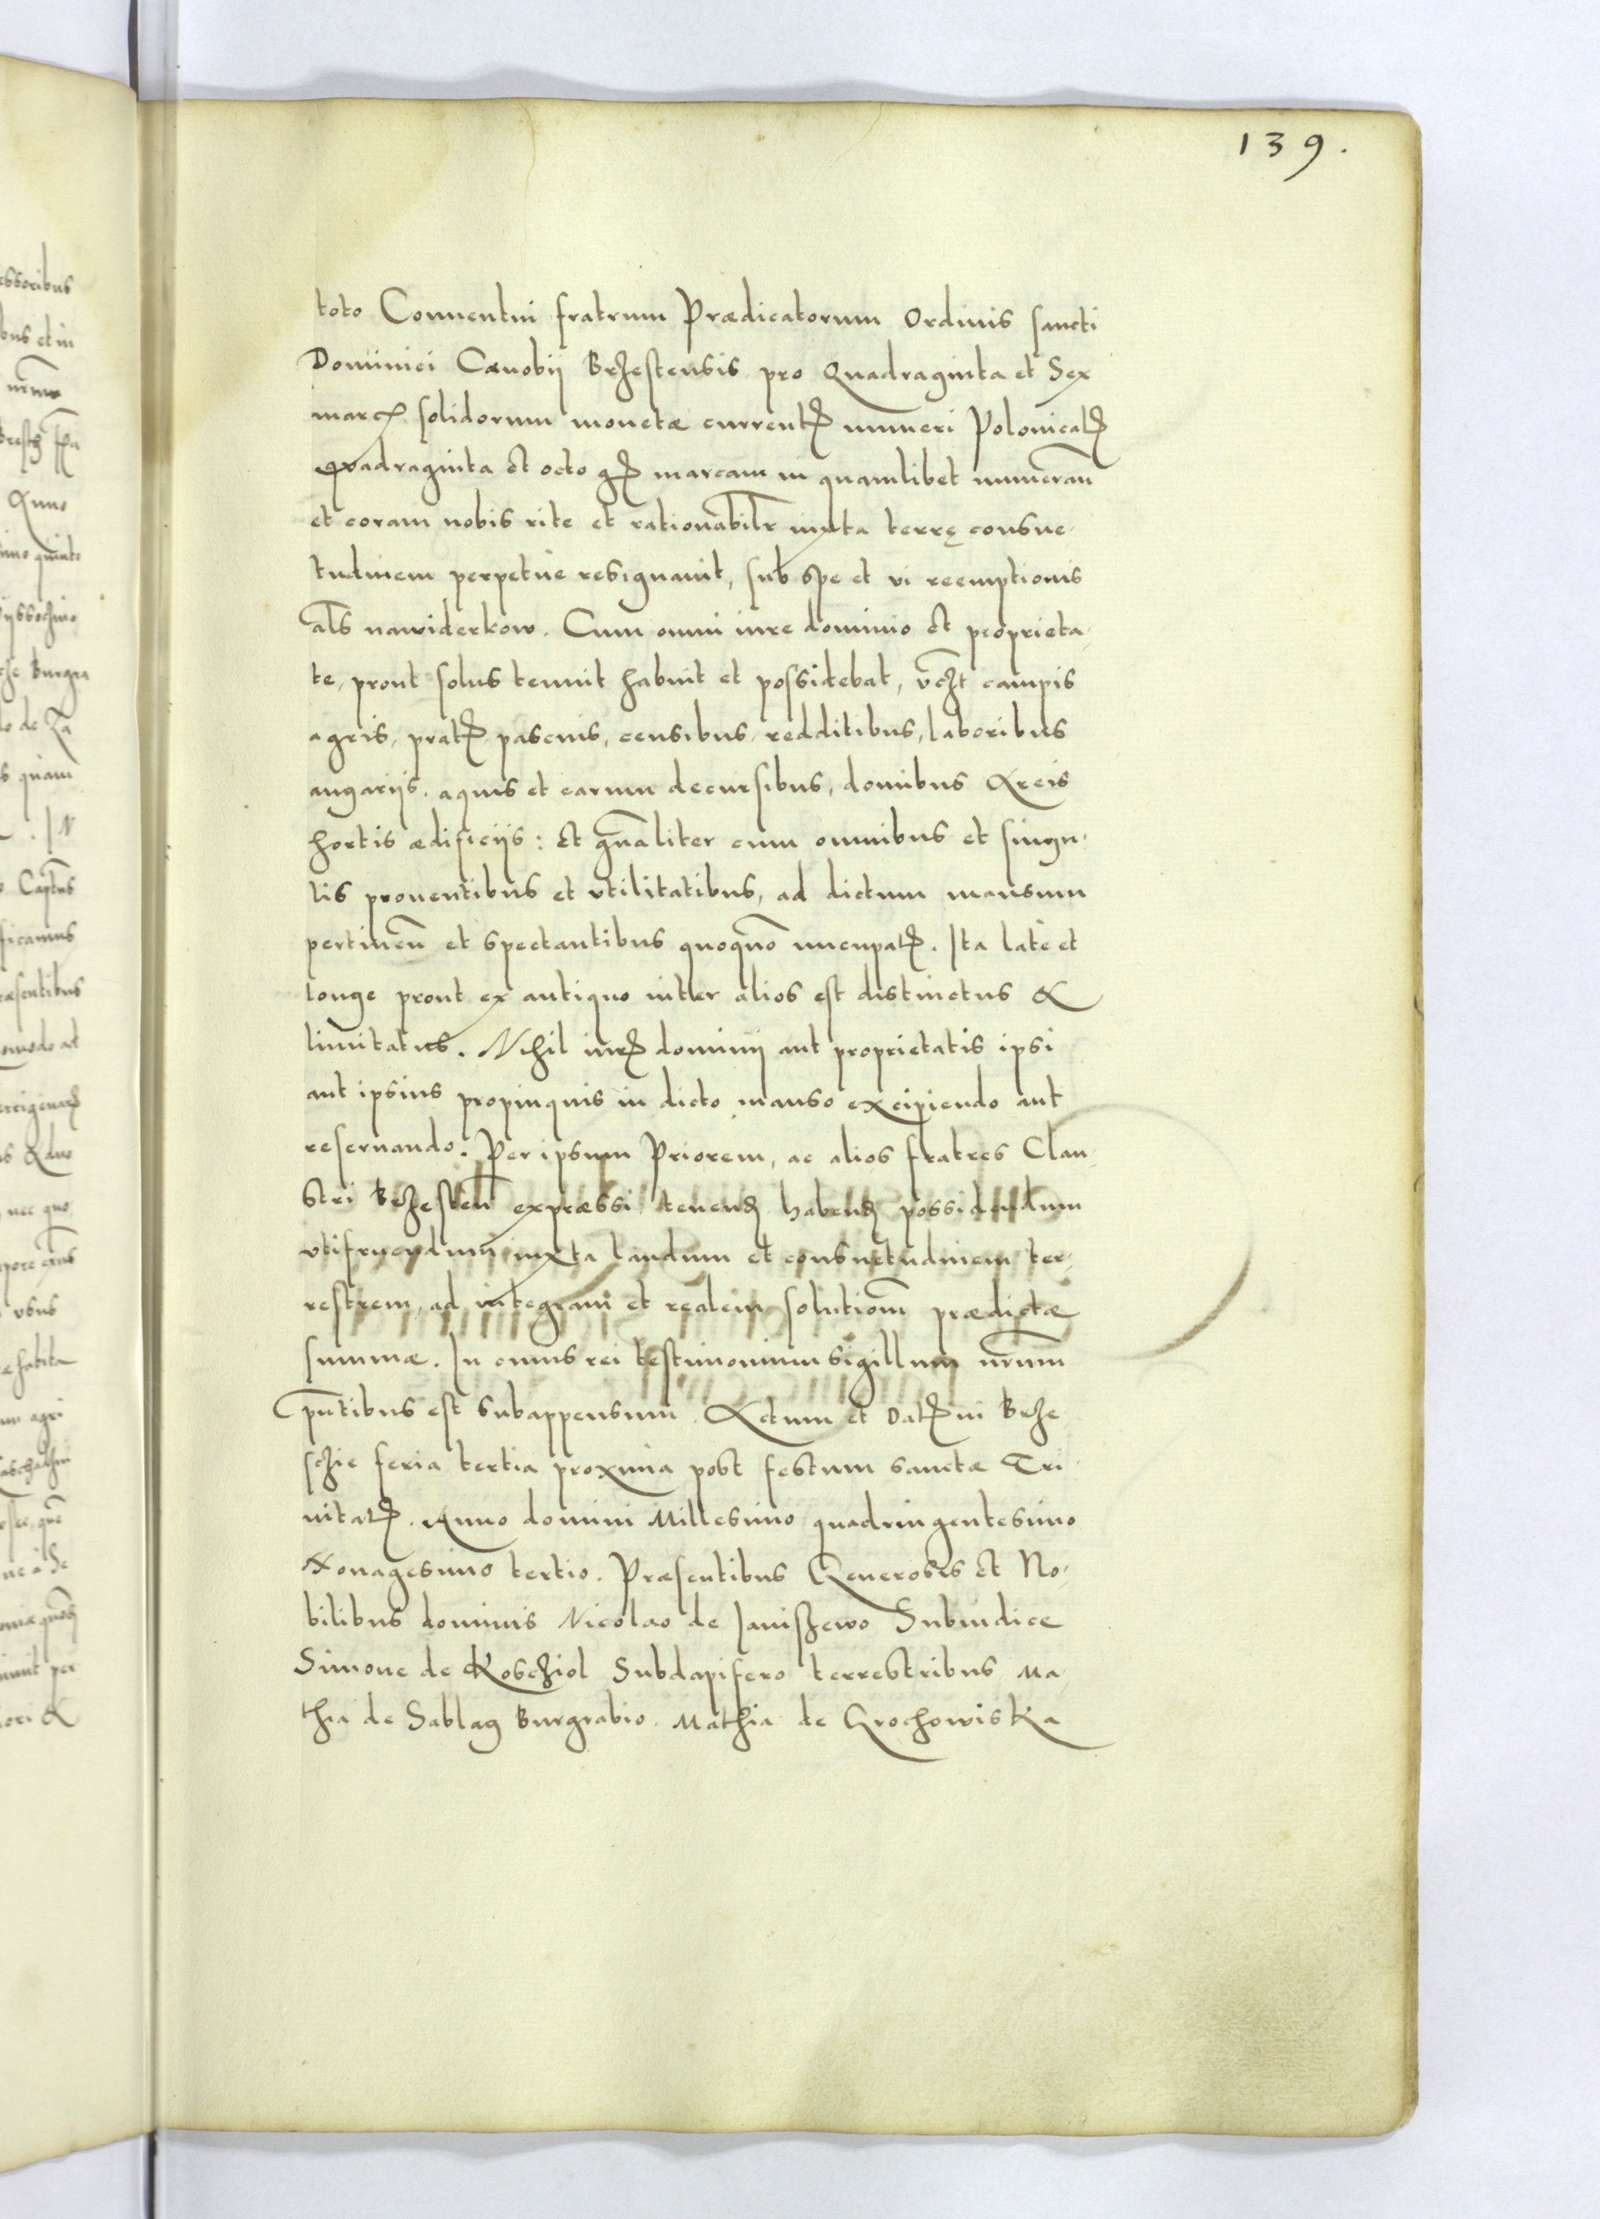 139.
toto Conuentui fratrum Prædicatorum Ordinis sancti
Dominici Cænobij Brzestensis pro Quadraginta et Sex
marcꝭ solidorum monetæ currentꝭ numeri Polonicalꝭ
quadraginta et octo gꝭ marcam in quamlibet numeran̄
et coram nobis rite et rationabilr̄ iuxta terrę consue-
tudinem perpetue resignauit, sub spe et vi reemptionis
al̄s nawiderkow. Cum omni iure dominio et proprieta-
te, prout solus tenuit habuit et possidebat, vc̄zt campis
agris, pratꝭ pascuis, censibus, redditibus, laboribus
angarijs, aquis et earum decursibus, domibus Areis
hortis ædificijs: et gn̄aliter cum omnibus et singu-
lis prouentibus et vtilitatibus, ad dictum mansum
pertinen̄ et spectantibus quoquō nuncupatꝭ. Ita late et
longe prout ex antiquo inter alios est distinctus &
limitatus. Nihil iurꝭ dominij aut proprietatis ipsi
aut ipsius propinquis in dicto manso excipiendo aut
reseruando. Per ipsum Priorem, ac alios fratres Clau-
stri Brzesten̄ expræssi tenendꝭ habendꝭ possidendum
vtifruendum iuxta laudum et consuetudinem ter-
restrem, ad integram et realem solutiom̄ prædictæ
summæ. In cuius rei testimonium sigillum nr̄um
pn̄tibus est subappensum. Actum et Datꝭ in Brze
schie feria tertia proxima post festum sanctæ Tri-
nitatꝭ. Anno domini Millesimo quadringentesimo
Nonagesimo tertio. Præsentibus Generosis et No-
bilibus dominis Nicolao de Janiszewo Subiudice
Simone de Koschiol Subdapifero terrestribus Ma-
thia de Sablag Burgrabio. Mathia de Grochowiska